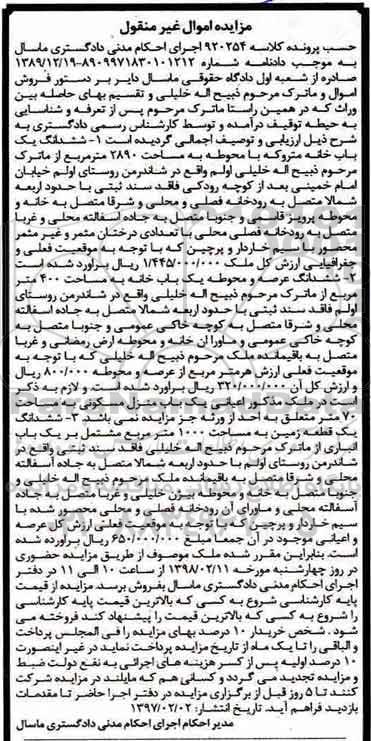 مزایده اموال غیر منقول
حسب پرونده کلاسه ۹۲۰۲۵۴ اجرای احکام مدنی دادگستری ماسال
به موجب دادنامه شماره ۸۹۰۹۹۷۱۸۳۰۱۰۱۲۱۲-۱۳۸۹/۱۲/۱۹
صادره از شعبه اول دادگاه حقوقی ماسال دایر بر دستور فروش
اموال و ماترک مرحوم ذبیح اله خلیلی و تقسیم بهای حاصله بین
وراث که در همین راستا ماترک مرحوم پس از تعرفه و شناسایی
به حیطه توقیف درآمده و توسط کارشناس رسمی دادگستری به
شرح ذیل ارزیابی و توصیف اجمالی گردیده است ۱- ششدانگ یک
باب خانه متروکه با محوطه به مساحت ۲۸۹۰ مترمربع از ماترک
مرحوم ذبیح اله خلیلی اولم واقع در شاندرمن روستای اولم خیابان
امام خمینی بعد از کوچه رودکی فاقد سند ثبتی با حدود اربعه
شمالا متصل به رودخانه فصلی و محلی و شرقا متصل به خانه و
محوطه پرویز قاسمی و جنوبا متصل به جاده آسفالته محلی و غربا
متصل به رودخانه فصلی محلی با تعدادی درختان مثمر و غیر مثمر
محصور با سیم خاردار و پرچین که با توجه به موقعیت فعلی و
جغرافیایی ارزش کل ملک ۱/۴۴۵/۰۰۰/۰۰۰ ریال برآورد شده است
۲- ششدانگ عرصه و محوطه یک باب خانه به مساحت ۴۰۰ متر
مربع از ماترک مرحوم ذبیح اله خلیلی واقع در شاندرمن روستای
اولم فاقد سند ثبتی با حدود اربعه شمالا متصل به جاده اسفالته
محلی و شرقا متصل به کوچه خاکی عمومی و جنوبا متصل به
کوچه خاکی عمومی و ماورا ان خانه و محوطه ارض رمضانی و غربا
متصل به باقیمانده ملک مرحوم ذبیح اله خلیلی که با توجه به
موقعیت فعلی ارزش هرمتر مربع از عرصه و محوطه ۸۰۰/۰۰۰ ریال
و ارزش کل آن ۳۲۰/۰۰۰/۰۰۰ ریال برآورد شده است و لازم به ذکر
است در ملک مذکور اعیانی یک باب منزل مسکونی به مساحت
۷۰ متر متعلق به احد از ورثه جز مزایده نمی باشد ۳- ششدانگ
یک قطعه زمین به مساحت ۱۰۰۰ متر مربع مشتمل بر یک باب
انباری از ماترک مرحوم ذبیح اله خلیلی فاقد سند ثبتی واقع در
شاندرمن روستای اولم با حدود اربعه شمالا متصل به جاده آسفالته
محلی و شرقا متصل به باقیمانده ملک مرحوم ذبیح اله خلیلی و
جنوبا متصل به خانه و محوطه بیژن خلیلی و غربا متصل به جاده
آسفالته محلی و ماورای آن رودخانه فصلی و محلی محصور شده با
سیم خاردار و پرچین که با توجه به موقعیت فعلی ارزش کل عرصه
و اعیانی موجود در آن جمعا مبلغ ۶۵۰/۰۰۰/۰۰۰ ریال برآورده شده
است. بنابراین مقرر شده ملک موصوف از طریق مزایده حضوری
در روز چهارشنبه مورخه ۱۳۹۸/۰۲/۱۱ از ساعت ۱۰ الی ۱۱ در دفتر
اجرای احکام مدنی دادگستری ماسال بفروش برسد. مزایده از قیمت
پایه کارشناسی شروع به کسی که بالاترین قیمت پایه کارشناسی
را شروع به کسی که بالاترین قیمت را پیشنهاد کند فروخته می
شود . شخص خریدار ۱۰ درصد بهای مزایده را فی المجلس پرداخت
و الباقی را تا یک ماه از تاریخ مزایده پرداخت نماید در غیر اینصورت
۱۰ درصد اولیه پس از کسر هزینه های اجرائی به نفع دولت ضبط
و مزایده تجدید می گردد و کسانی هم که مایلند در مزایده شرکت
کنند تا ۵ روز قبل از برگزاری مزایده در دفتر اجرا حاضر تا مقدمات
بازدید فراهم آید. تاریخ انتشار: ۱۳۹۷/۰۲/۰۲
مدیر احکام اجرای احکام مدنی دادگستری ماسال